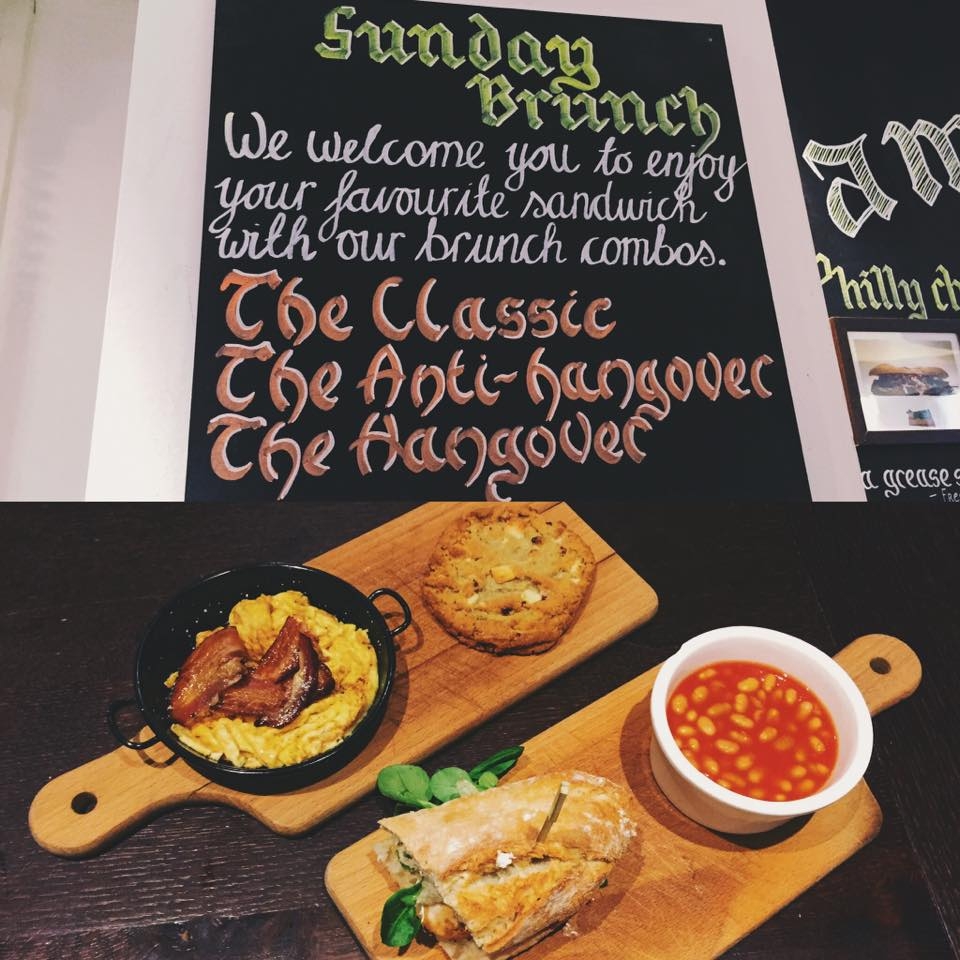 Sunday
Brunch
We welcome you to enjoy
your favourite sandwich
with our brunch combos.
The Classic
The Anti-hangover
The Hangover
am
Philly ch
a grease s